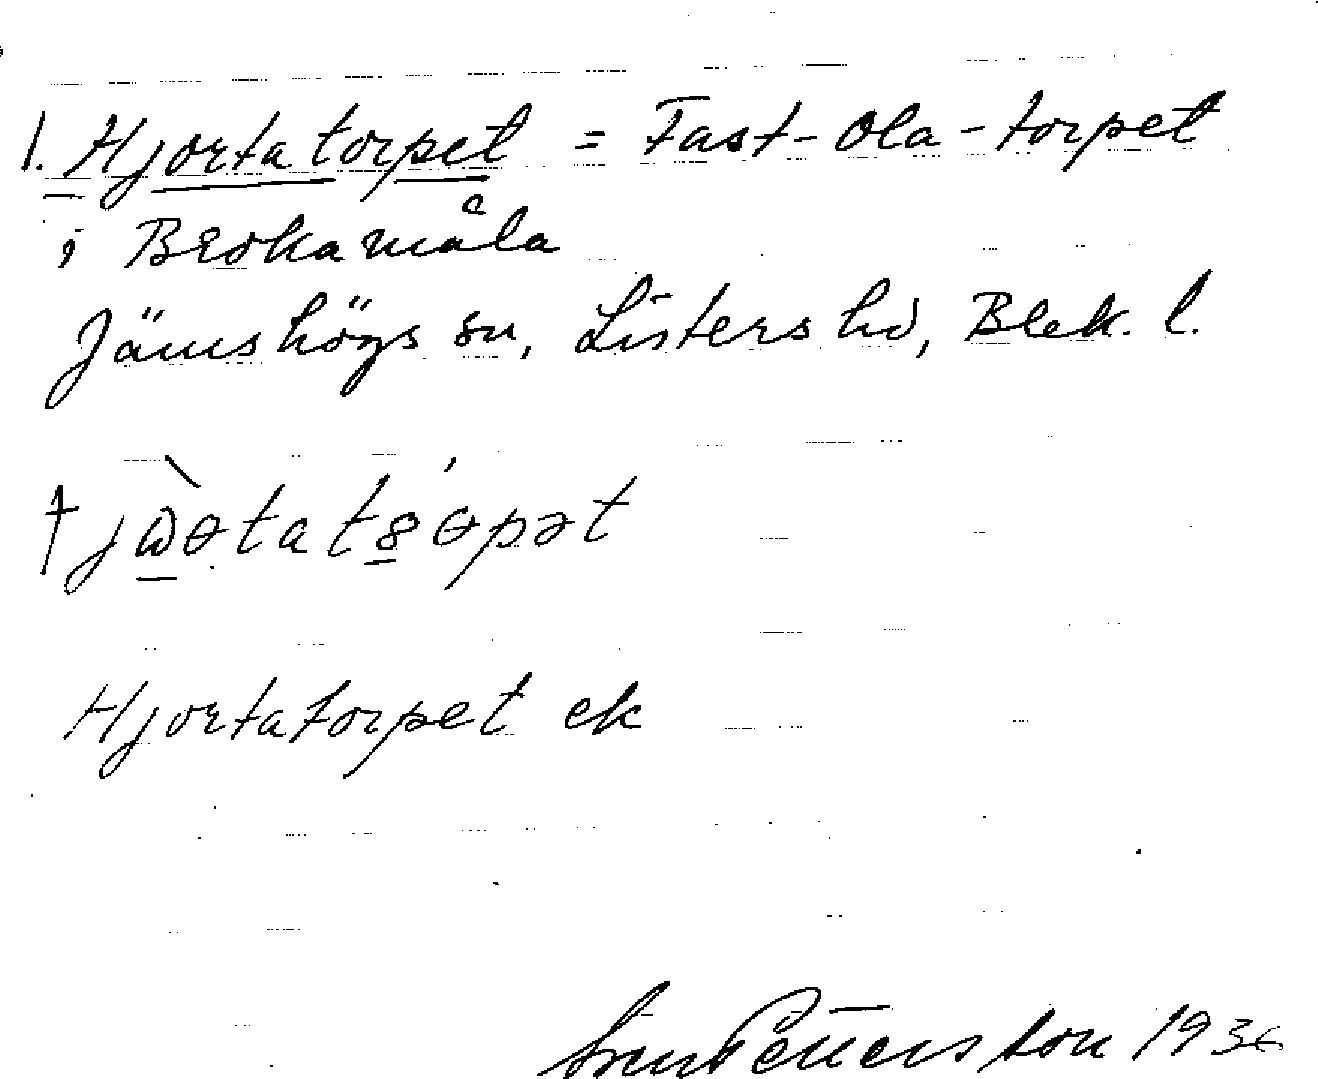 1. Hjortatorpet = Fast-Ola-torpet
i Brokamåla
Jämshögs sn, Listers hd, Blek. l.
†jὼ̲ɵtatȣ̲́ɵpət
Hjortatorpet ek
Sven Petterson 1936